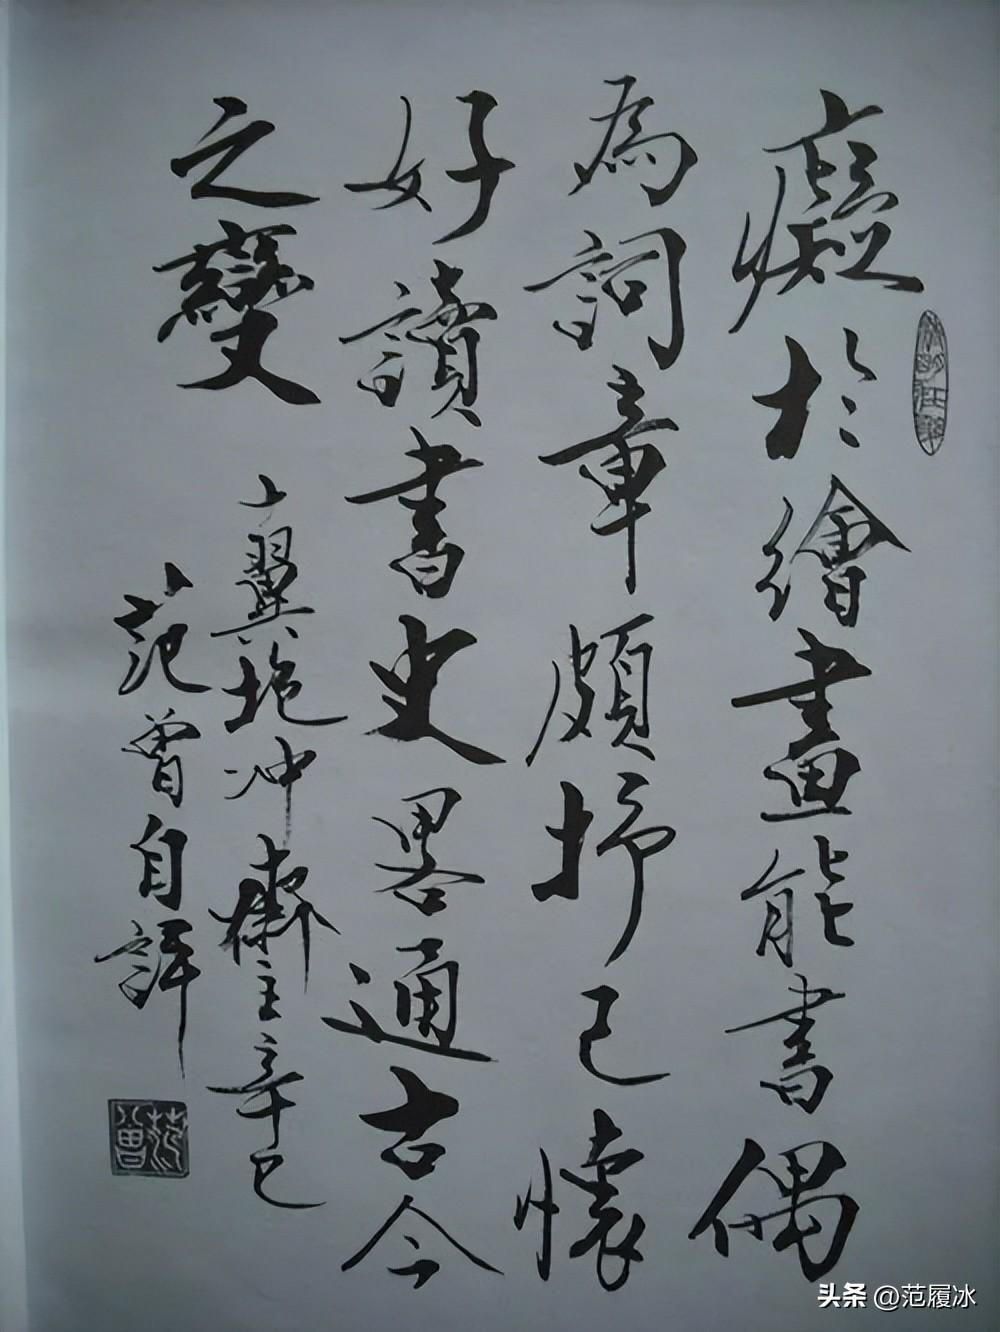 癡於繪畫能書偶
為詞章頗抒己懷
好讀書史畧通古今
之變
十翼抱沖齋主辛巳
范曾自評
范曾
头条 @范履冰